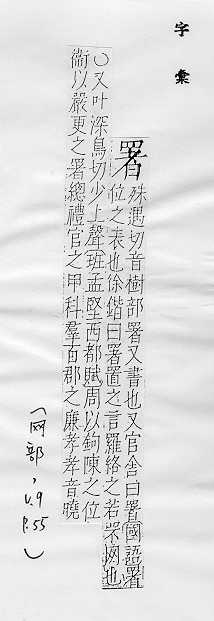 字彙
署 殊遇切音樹部署又書也又官舍曰署國語署
位之表也徐鍇曰署置之言羅絡之若罘网也
○又叶深鳥切少上聲班孟堅西都賦周以鉤陳之位
衞以嚴更之署總禮官之甲科羣百郡之廉孝孝音曉
(网部, V.9
P.55)